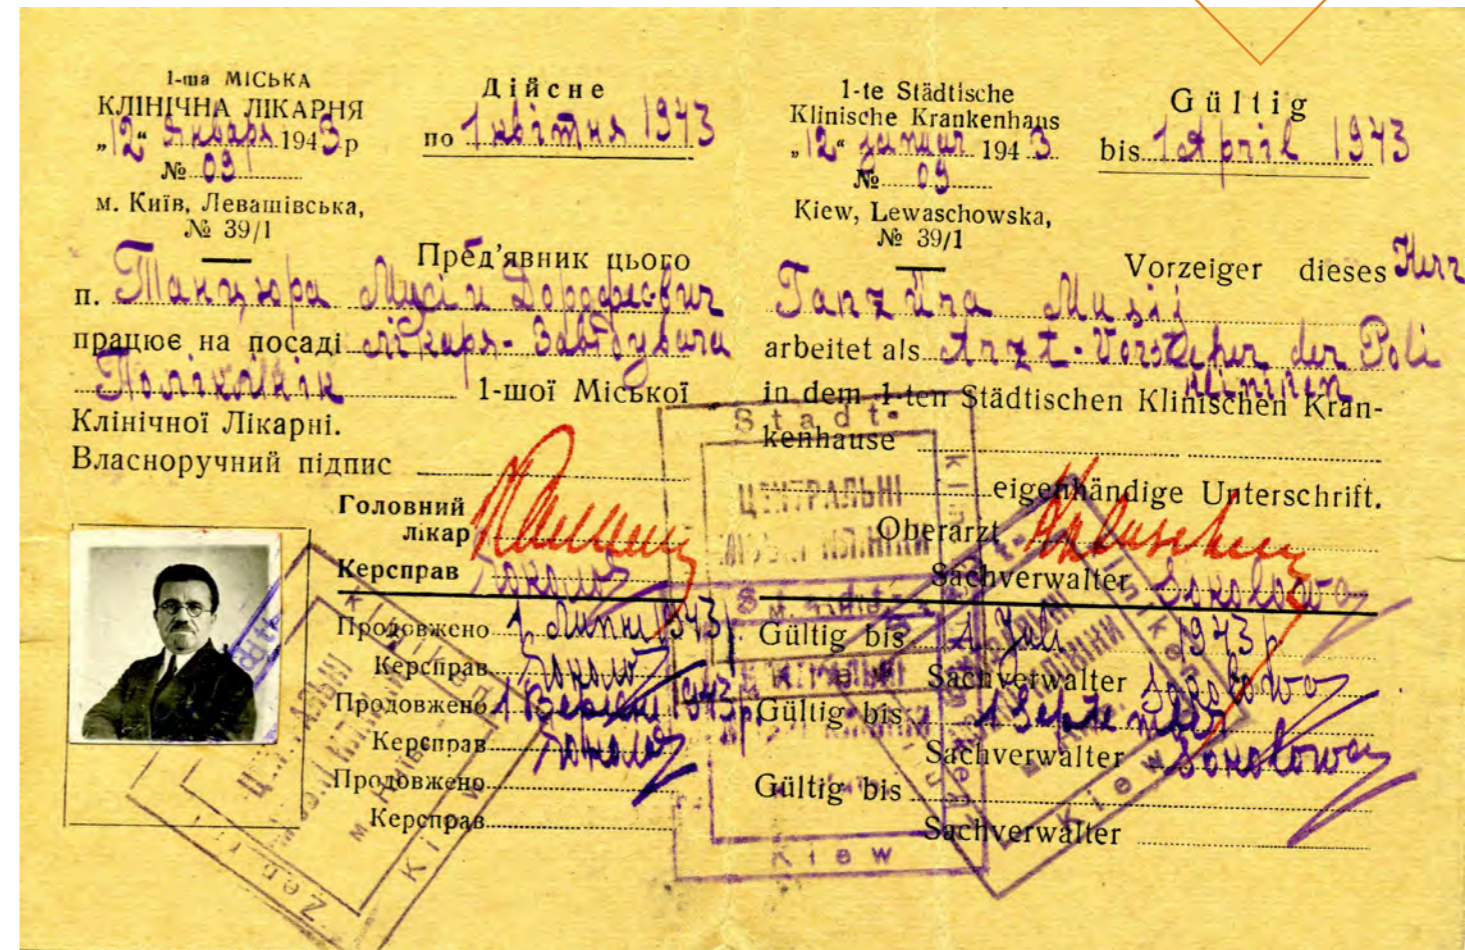 1-ша МІСЬКА
КЛІНІЧНА ЛІКАРНЯ
„12“ Января 1943 р
№ 09
м. Київ, Левашівська,
№ 39/1
Дійсне
по 1 квітня 1943
Пред'явник цього
п. Танцюра Мусій Дорофеєвич
працює на посаді лікаря-Завідувача
Поліклінік 1-шої Міської
Клінічної Лікарні.
Власноручний підпис
Головний
лікар
Керсправ
Продовжено 1 Липня 1943
Керсправ
Продовжено 1 Вересня 1943 р
Керсправ
Продовжено
Керсправ
1-te Städtische
Klinische Krankenhaus
„12“ Januar 1943
№ 09
Kiew, Lewaschowska,
№ 39/1
Gültig
bis 1 April 1943
Vorzeiger dieses Herr
Tanzüra Musij
arbeitet als Arzt-Vorsteher der Poli
kliniken
in dem 1-ten Städtischen Klinischen Kran-
kenhause
eigenhändige Unterschrift.
Oberarzt
Sachverwalter Sokolowa
Gültig bis 1 Juli 1943
Sachverwalter Sokolowa
Gültig bis 1 September
Sachverwalter Sokolowa
Gültig bis
Sachverwalter
Stadt-
ЦЕНТРАЛЬНІ
Kiew
Kiew
Kiew